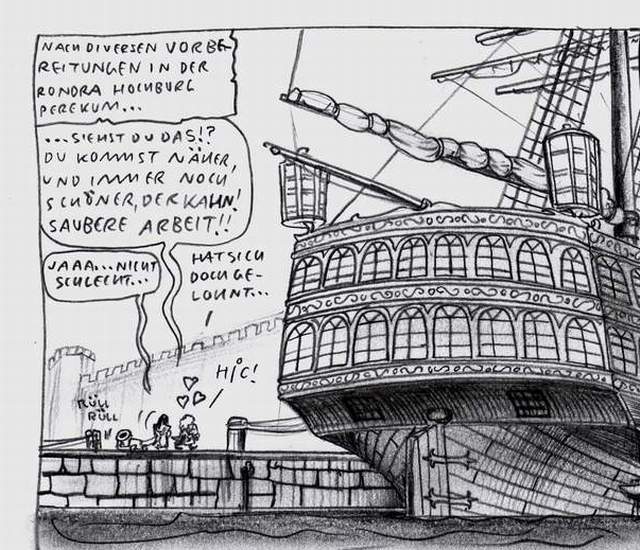 NACH DIVERSEN VORBE-
REITUNGEN IN DER
RONDRA HOCHBURG
PEREKUM...
...SIEHST DU DAS!?
DU KOMMST NÄHER,
UND IMMER NOCH
SCHÖNER, DER KAHN!
SAUBERE ARBEIT!!
JAAA...NICHT
SCHLECHT...
HAT SICH
DOCH GE-
LOHNT...
HIC!
RÜLL
RÜLL